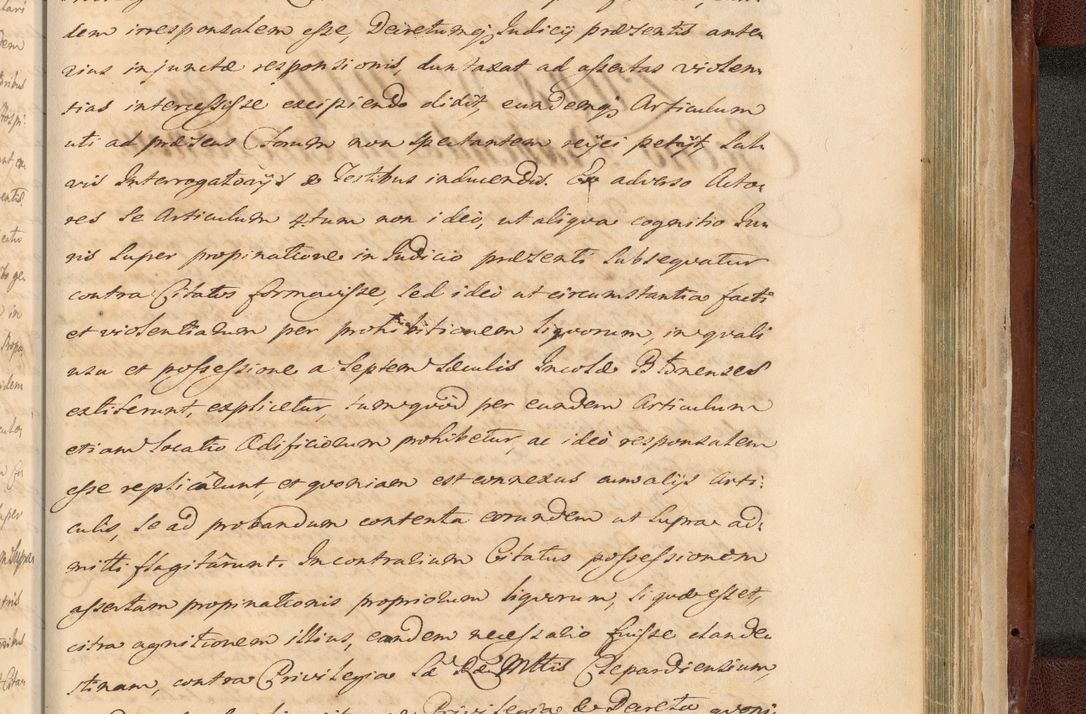 dem irresponsalem esse, Decretumq Judicij præsentis ante-
rius injunctæ responsionis, duntaxat ad assertas violen-
tias intercessisse excipiendo didit, eundemq Articulum
uti ad præsens Forum non spectantem rejici petijt Sal-
vis Interrogatorijs & Testibus inducendis. Ex adverso Acto-
res se Articulum 4tum non ideo, ut aliqua cognitio Ju-
ris super propinatione in Judicio præsenti subsequatur
contra Citatos formavisse, sed ideo ut circumstantia facti
et violentiarum per prohibitionem liquorum, in quali
usu et possessione a septem sæculis Incolæ
extiterunt, explicetur, tum quod per eundem Articulum
etiam locatio Ædificiorum prohibetur, ac ideo responsalem
esse replicarunt, et quoniam est connexus cum alijs Arti-
culis, se ad probandum contenta eorundem ut supra ad-
mitti flagitarunt. In contrarium Citatus possessionem
assertam propinationis propriorum liquorum, si quæ esset,
citra agnitionem illius, eandem necessario fuisse clande-
stinam, contra Privilegia Clepardiensium,
Privilegia & Decreta